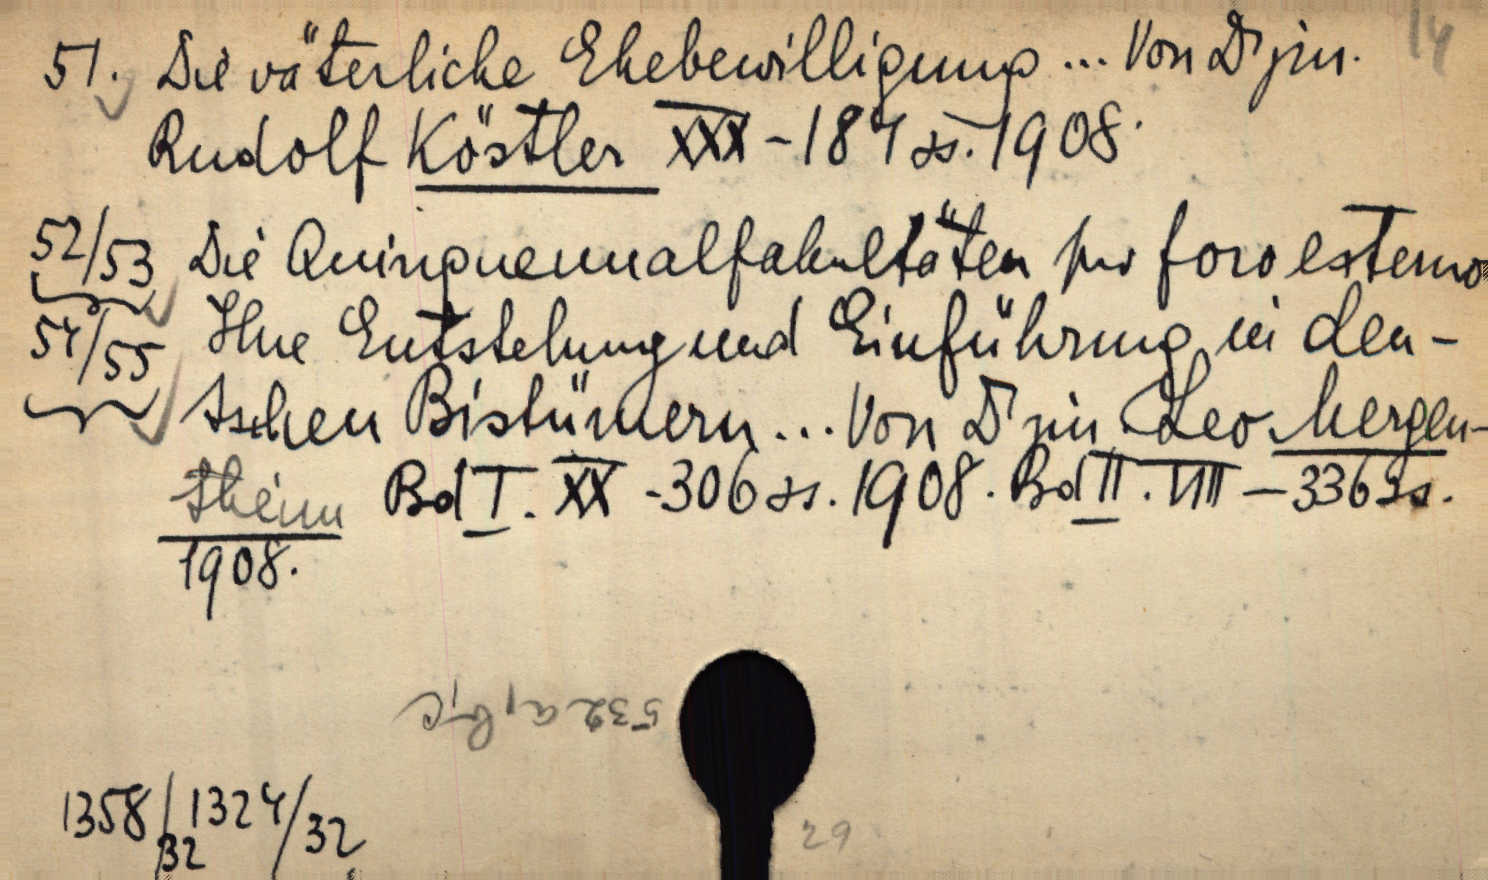 14
51. Die väterliche Ehebewilligung ... Von Dr jur.
Rudolf Köstler XXX - 187 ss. 1908.
52/53 Die Quinquennalfakultäten pro foro externo
54/55 Ihre Entstehung und Einführung in deu-
tschen Bistümern ... Von Dr jur. Leo Mergen-
theim Bd I. XX - 306 ss. 1908. Bd II. VIII - 336 ss.
1908.
532 a, b, c
1358/32 1324/32
29